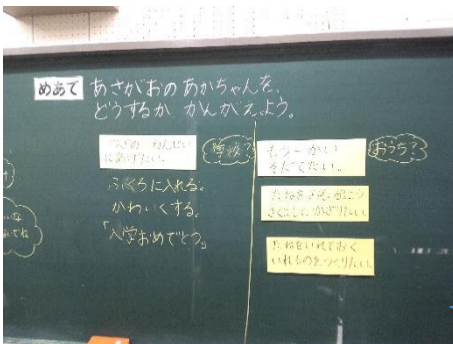 めあて あさがおの あかちゃんを、
どうするか かんがえよう。
にあげたい。
学校?
ふくろに入れる。
かわいくする。
「入学おめでとう」
もう一かい
そだてたい。
おうち?
かざりたい。
たねをいれておく
いれものをつくりたい。